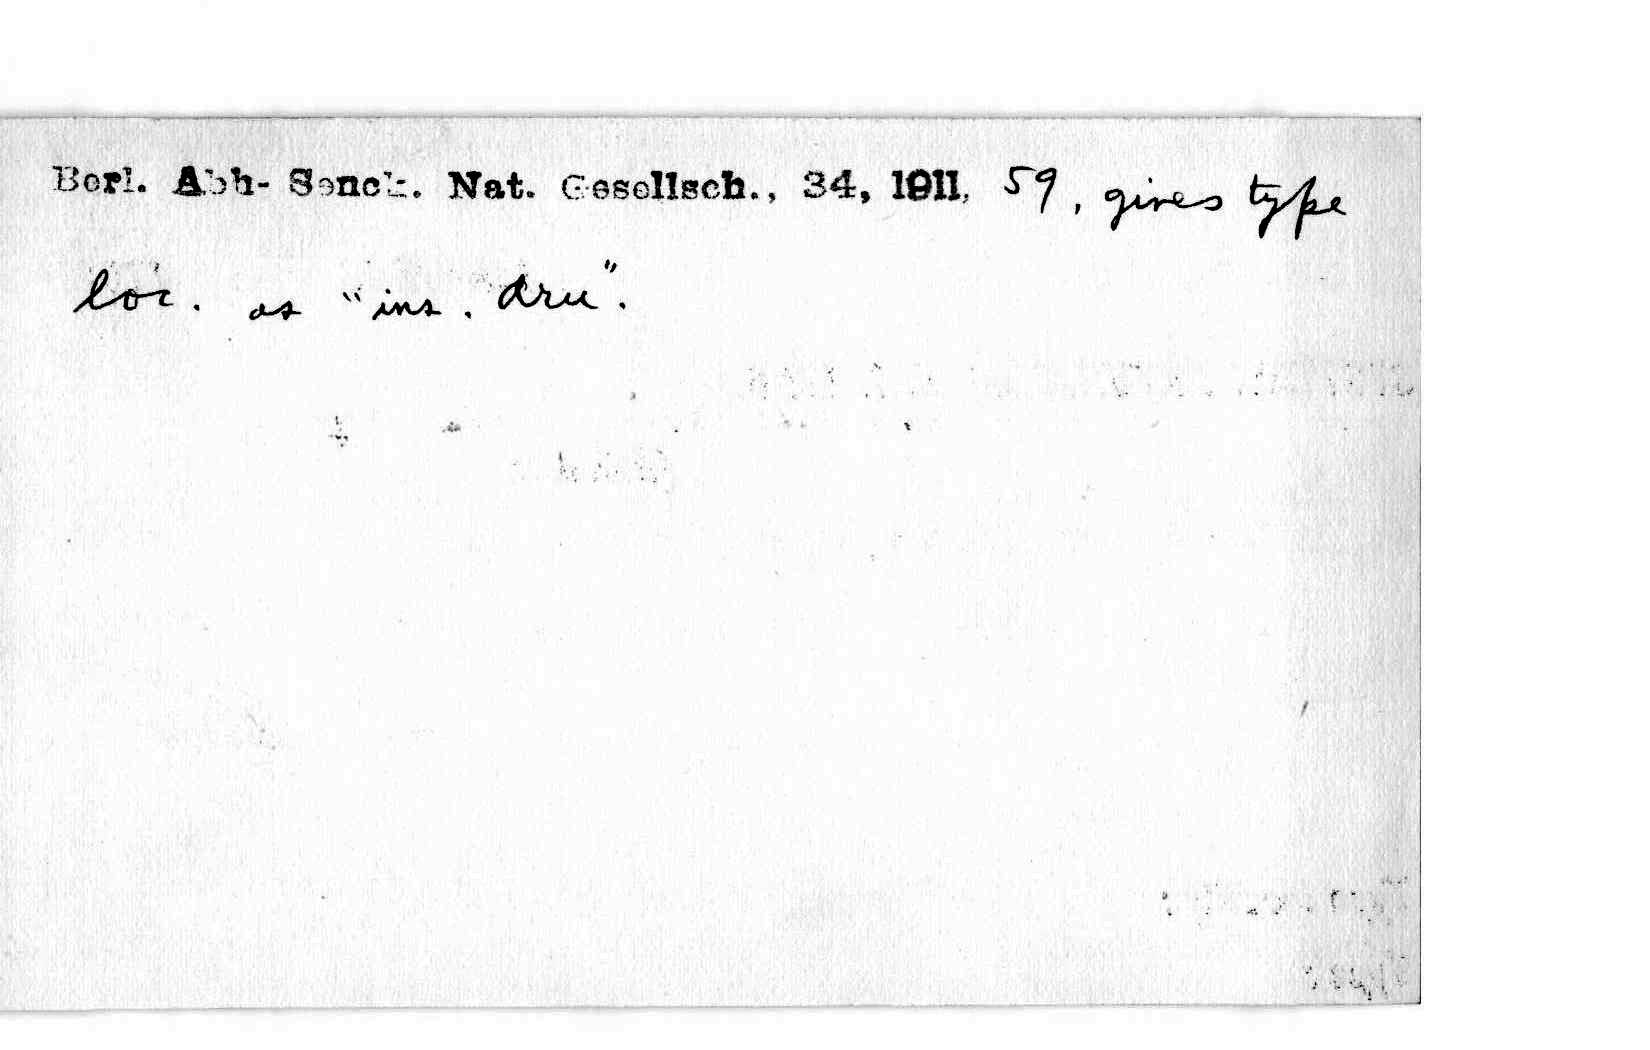 Berl. Abh- Senck. Nat. Gesellsch., 34, 1911, 59, gives type
loc. as "ins. Aru".